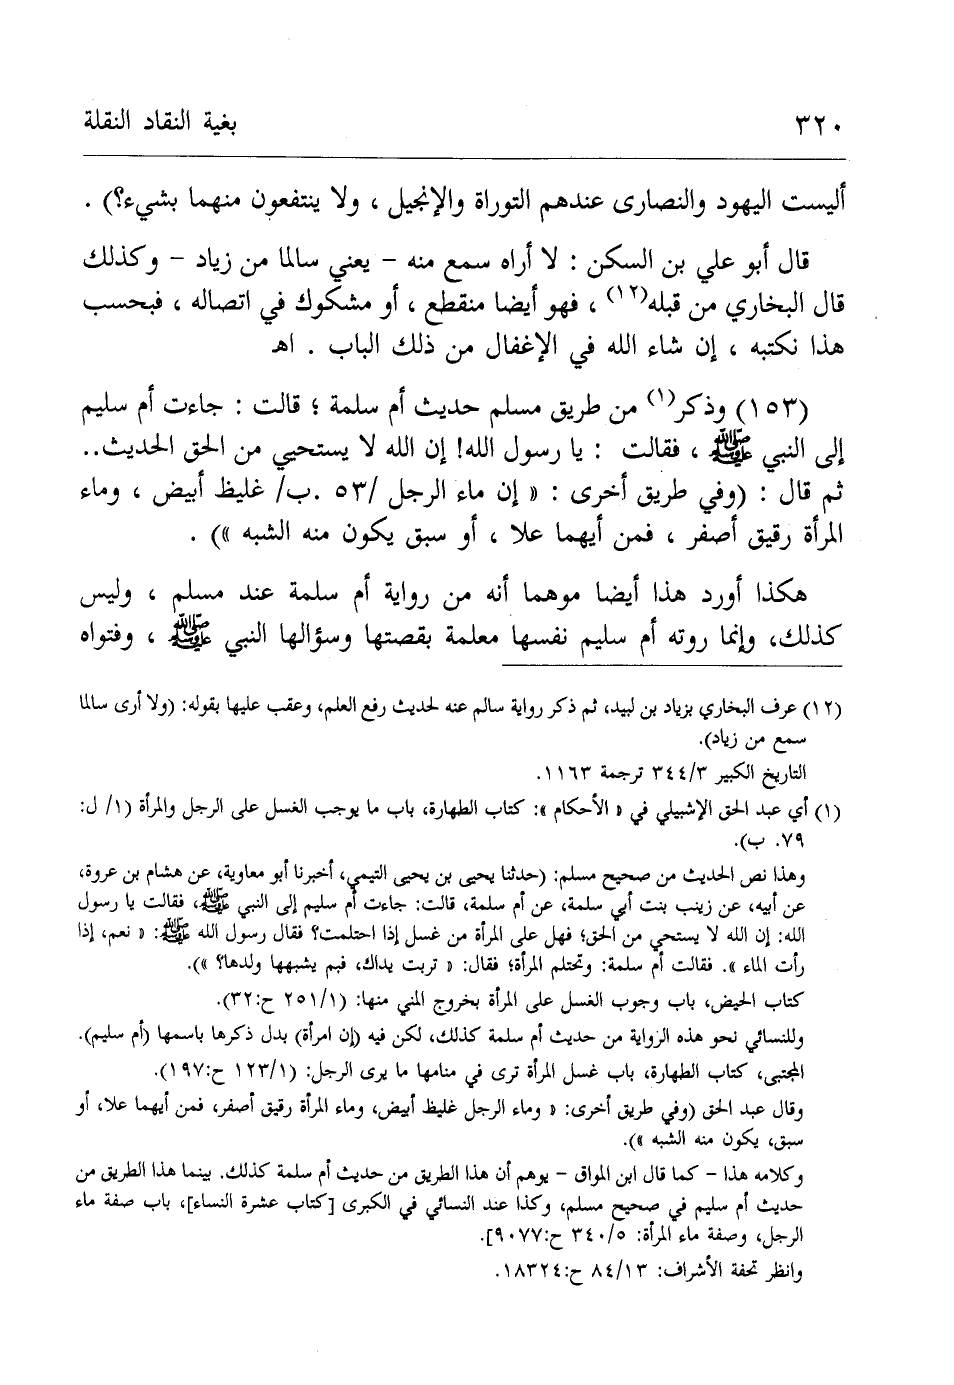 ٣٢٠ بغية النقاد النقلة
أليست اليهود والنصارى عندهم التوراة والإنجيل ، ولا ينتفعون منهما بشيء؟) .
قال أبو علي بن السكن : لا أراه سمع منه – يعني سالما من زياد – وكذلك
قال البخاري من قبله(١٢) ، فهو أيضا منقطع ، أو مشكوك في اتصاله ، فبحسب
هذا نكتبه ، إن شاء الله في الإغفال من ذلك الباب . اهـ
(١٥٣) وذكر(١) من طريق مسلم حديث أم سلمة ؛ قالت : جاءت أم سليم
إلى النبي ﷺ ، فقالت : يا رسول الله! إن الله لا يستحيي من الحق الحديث..
ثم قال : (وفي طريق أخرى : « إن ماء الرجل /٥٣ .ب/ غليظ أبيض ، وماء
المرأة رقيق أصفر ، فمن أيهما علا ، أو سبق يكون منه الشبه ») .
هكذا أورد هذا أيضا موهما أنه من رواية أم سلمة عند مسلم ، وليس
كذلك، وإنما روته أم سليم نفسها معلمة بقصتها وسؤالها النبي ﷺ ، وفتواه
(١٢) عرف البخاري بزياد بن لبيد، ثم ذكر رواية سالم عنه لحديث رفع العلم، وعقب عليها بقوله: (ولا أرى سالما
سمع من زياد).
التاريخ الكبير ٣٤٤/٣ ترجمة ١١٦٣.
(١) أي عبد الحق الإشبيلي في « الأحكام »: كتاب الطهارة، باب ما يوجب الغسل على الرجل والمرأة (١/ ل:
٧٩. ب).
وهذا نص الحديث من صحيح مسلم: (حدثنا يحيى بن يحيى التيمي، أخبرنا أبو معاوية، عن هشام بن عروة،
عن أبيه، عن زينب بنت أبي سلمة، عن أم سلمة، قالت: جاءت أم سليم إلى النبي ﷺ، فقالت يا رسول
الله: إن الله لا يستحي من الحق؛ فهل على المرأة من غسل إذا احتلمت؟ فقال رسول الله ﷺ: « نعم، إذا
رأت الماء ». فقالت أم سلمة: وتحتلم المرأة؛ فقال: « تربت يداك، فبم يشبهها ولدها؟ »).
كتاب الحيض، باب وجوب الغسل على المرأة بخروج المني منها: (٢٥١/١ ح:٣٢).
وللنسائي نحو هذه الرواية من حديث أم سلمة كذلك، لكن فيه (إن امرأة) بدل ذكرها باسمها (أم سليم).
المجتبى، كتاب الطهارة، باب غسل المرأة ترى في منامها ما يرى الرجل: (١٢٣/١ ح:١٩٧).
وقال عبد الحق (وفي طريق أخرى: « وماء الرجل غليظ أبيض، وماء المرأة رقيق أصفر، فمن أيهما علا، أو
سبق، يكون منه الشبه »).
وكلامه هذا – كما قال ابن المواق – يوهم أن هذا الطريق من حديث أم سلمة كذلك. بينما هذا الطريق من
حديث أم سليم في صحيح مسلم، وكذا عند النسائي في الكبرى [كتاب عشرة النساء]، باب صفة ماء
الرجل، وصفة ماء المرأة: ٣٤٠/٥ ح:٩٠٧٧].
وانظر تحفة الأشراف: ٨٤/١٣ ح:١٨٣٢٤.